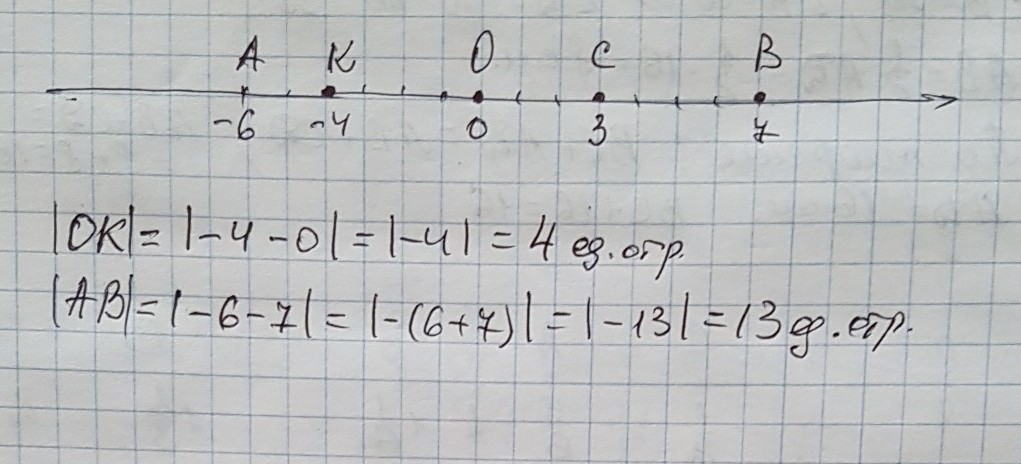 A K O C B
-6 -4 0 3 7
|OK| = |-4-0| = |-4| = 4 ед. отр.
|AB| = |-6-7| = |-(6+7)| = |-13| = 13 ед. отр.